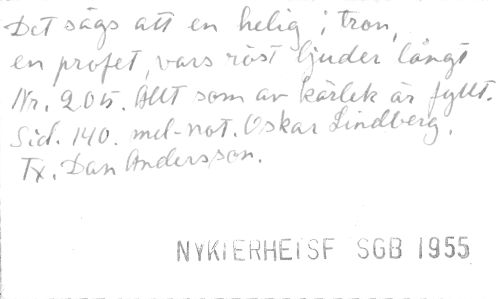 Det sägs att en helig i tron,
en profet, vars röst ljuder långt
Nr. 205. Allt som av kärlek är fyllt.
Sid. 140. mel-not. Oskar Lindberg.
Tx. Dan Andersson.
NYKTERHETSF SGB 1955